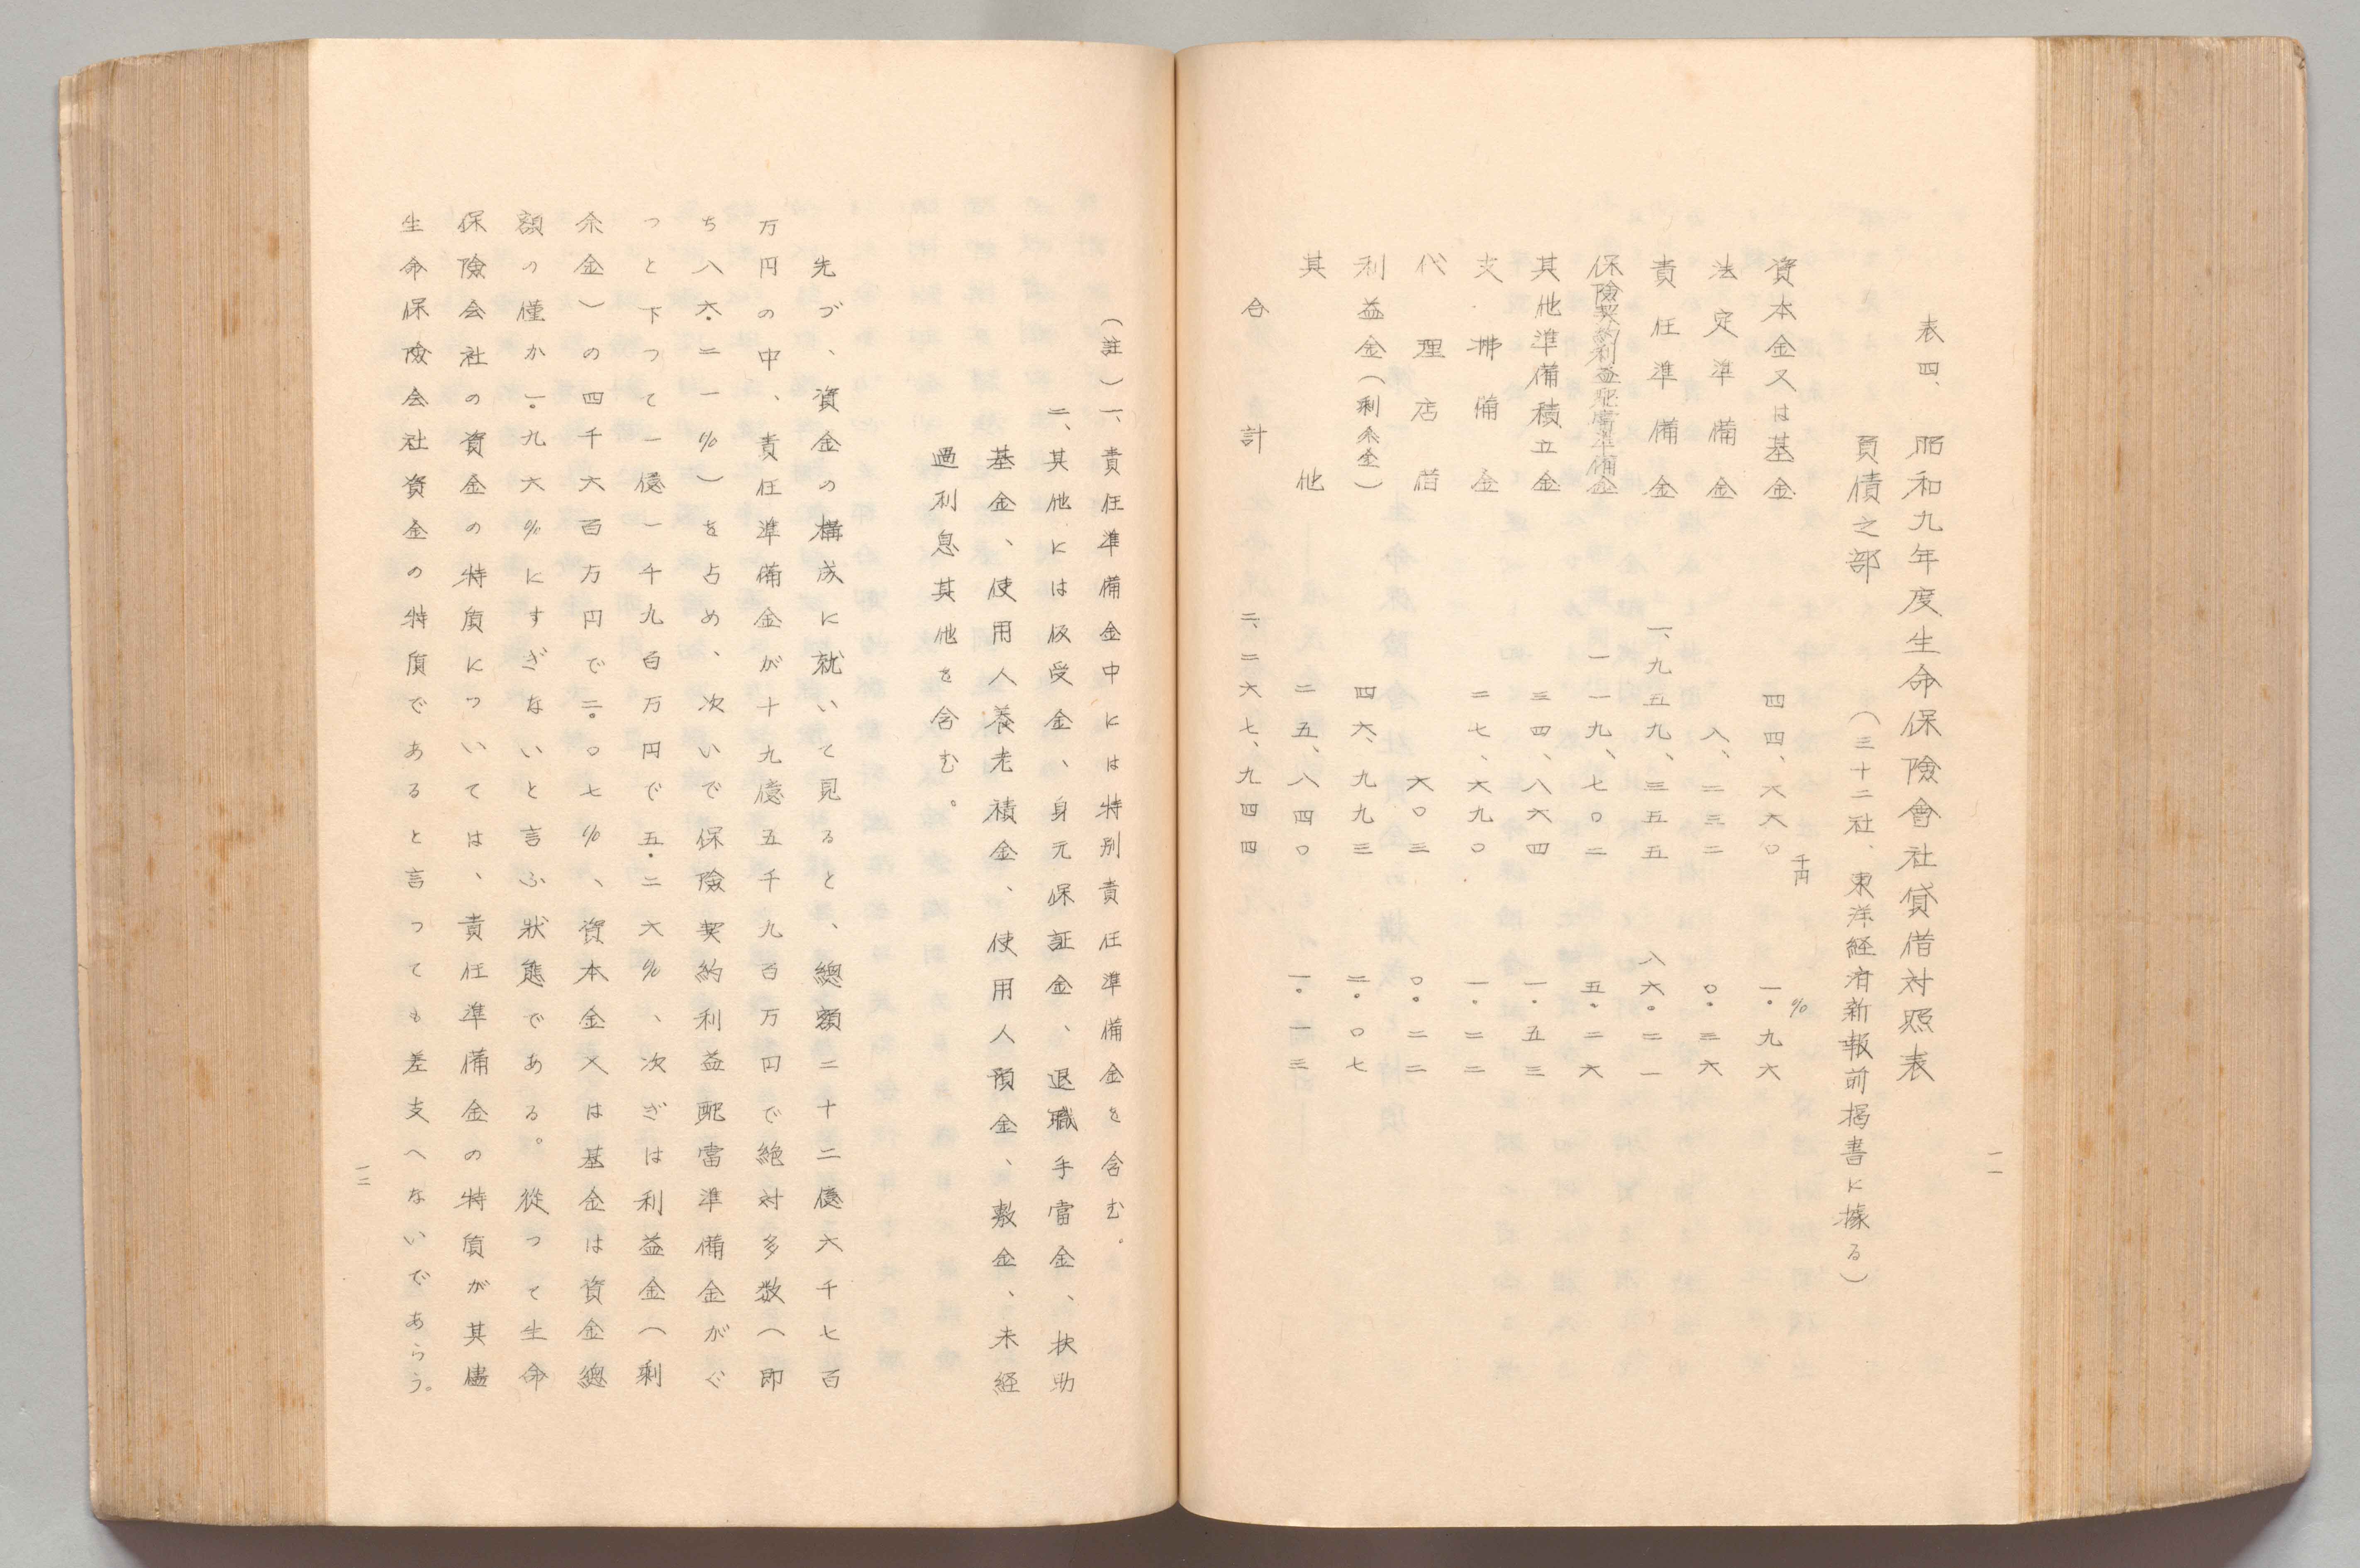 表四、昭和九年度生命保険會社貸借対照表
負債之部（三十二社、東洋経済新報前掲書に據る）
千円　%
資本金又は基金　四四、六六〇　一。九六
法定準備金　八、二三二　〇。三六
責任準備金　一、九五九、三五五　八六。二一
保険契約利益配當準備金　一一九、七〇二　五。二六
其他準備積立金　三四、八六四　一。五三
支拂備金　二七、六九〇　一。二二
代理店借　六〇三　〇。二二
利益金（剰余金）　四六、九九三　二。〇七
其他　二五、八四〇　一。一三
合計　二、二六七、九四四
一一
（註）一、責任準備金中には特別責任準備金を含む。
二、其他には仮受金、身元保証金、退職手當金、扶助
基金、使用人養老積金、使用人預金、敷金、未経
過利息其他を含む。
先づ、資金の構成に就いて見ると、總額二十二億六千七百
万円の中、責任準備金が十九億五千九百万円で絶対多数（即
ち八六・二一%）を占め、次いで保険契約利益配當準備金がぐ
っと下つて一億一千九百万円で五・二六%、次ぎは利益金（剰
余金）の四千六百万円で二。〇七%、資本金又は基金は資金總
額の僅か一。九六%にすぎないと言ふ狀態である。從つて生命
保険会社の資金の特質については、責任準備金の特質が其儘
生命保険会社資金の特質であると言つても差支へないであらう。
一二